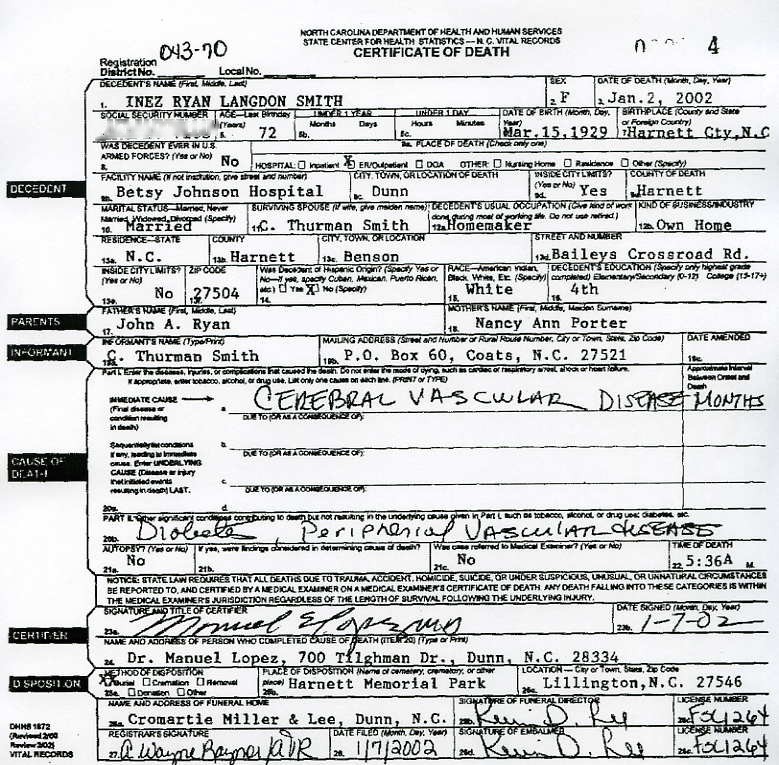 NORTH CAROLINA DEPARTMENT OF HEALTH AND HUMAN SERVICES
STATE CENTER FOR HEALTH STATISTICS — N.C. VITAL RECORDS
CERTIFICATE OF DEATH
4
Registration District No. 043-70 Local No.
DECEDENT'S NAME (First, Middle, Last) SEX DATE OF DEATH (Month, Day, Year)
1. INEZ RYAN LANGDON SMITH 2. F 3. Jan.2, 2002
SOCIAL SECURITY NUMBER AGE—Last Birthday (Years) UNDER 1 YEAR UNDER 1 DAY DATE OF BIRTH (Month, Day, Year) BIRTHPLACE (County and State or Foreign Country)
72 5b. Months Days 5c. Hours Minutes Mar.15.1929 7. Harnett Cty,N.C
WAS DECEDENT EVER IN U.S. ARMED FORCES? (Yes or No) 9a. PLACE OF DEATH (Check only one)
No HOSPITAL: Inpatient X ER/Outpatient DOA OTHER: Nursing Home Residence Other (Specify)
DECEDENT
FACILITY NAME (If not institution, give street and number) CITY, TOWN, OR LOCATION OF DEATH INSIDE CITY LIMITS? (Yes or No) COUNTY OF DEATH
9b. Betsy Johnson Hospital 9c. Dunn 9d. Yes Harnett
MARITAL STATUS—Married, Never Married, Widowed, Divorced (Specify) SURVIVING SPOUSE (If wife, give maiden name) DECEDENT'S USUAL OCCUPATION (Give kind of work done during most of working life. Do not use retired.) KIND OF BUSINESS/INDUSTRY
10. Married 11. C. Thurman Smith 12a. Homemaker 12b. Own Home
RESIDENCE—STATE COUNTY CITY, TOWN, OR LOCATION STREET AND NUMBER
13a. N.C. 13b. Harnett 13c. Benson 13d. Baileys Crossroad Rd.
INSIDE CITY LIMITS? (Yes or No) ZIP CODE Was Decedent of Hispanic Origin? (Specify Yes or No—If yes, specify Cuban, Mexican, Puerto Rican, etc.) Yes X No (Specify) RACE—American Indian, Black, White, Etc. (Specify) DECEDENT'S EDUCATION (Specify only highest grade completed) Elementary/Secondary (0-12) College (13-17+)
13e. No 13f. 27504 14. 15. White 16. 4th
PARENTS
FATHER'S NAME (First, Middle, Last) MOTHER'S NAME (First, Middle, Maiden Surname)
17. John A. Ryan 18. Nancy Ann Porter
INFORMANT
INFORMANT'S NAME (Type/Print) MAILING ADDRESS (Street and Number or Rural Route Number, City or Town, State, Zip Code) DATE AMENDED
19a. C. Thurman Smith 19b. P.O. Box 60, Coats, N.C. 27521 19c.
Part I. Enter the diseases, injuries, or complications that caused the death. Do not enter the mode of dying, such as cardiac or respiratory arrest, shock or heart failure. Approximate Interval Between Onset and Death
If appropriate, enter tobacco, alcohol, or drug use. List only one cause on each line. (PRINT or TYPE)
IMMEDIATE CAUSE (Final disease or condition resulting in death) a. CEREBRAL VASCULAR DISEASE MONTHS
DUE TO (OR AS A CONSEQUENCE OF):
CAUSE OF DEATH
Sequentially list conditions if any, leading to immediate cause. Enter UNDERLYING CAUSE (Disease or injury that initiated events resulting in death) LAST. b.
DUE TO (OR AS A CONSEQUENCE OF):
c.
DUE TO (OR AS A CONSEQUENCE OF):
20a. d.
PART II. Other significant conditions contributing to death but not resulting in the underlying cause given in Part I, such as tobacco, alcohol, or drug use; diabetes, etc.
20b. Diabetes, Peripherial VASCULAR DISEASE
AUTOPSY? (Yes or No) If yes, were findings considered in determining cause of death? Was case referred to Medical Examiner? (Yes or No) TIME OF DEATH
21a. No 21b. 21c. No 22. 5:36A M.
NOTICE: STATE LAW REQUIRES THAT ALL DEATHS DUE TO TRAUMA, ACCIDENT, HOMICIDE, SUICIDE, OR UNDER SUSPICIOUS, UNUSUAL, OR UNNATURAL CIRCUMSTANCES
BE REPORTED TO, AND CERTIFIED BY A MEDICAL EXAMINER ON A MEDICAL EXAMINER'S CERTIFICATE OF DEATH. ANY DEATH FALLING INTO THESE CATEGORIES IS WITHIN
THE MEDICAL EXAMINER'S JURISDICTION REGARDLESS OF THE LENGTH OF SURVIVAL FOLLOWING THE UNDERLYING INJURY.
CERTIFIER
SIGNATURE AND TITLE OF CERTIFIER DATE SIGNED (Month, Day, Year)
23a. Manuel E Lopez MD 23b. 1-7-02
NAME AND ADDRESS OF PERSON WHO COMPLETED CAUSE OF DEATH (ITEM 20) (Type or Print)
24. Dr. Manuel Lopez, 700 Tilghman Dr., Dunn, N.C. 28334
DISPOSITION
METHOD OF DISPOSITION PLACE OF DISPOSITION (Name of cemetery, crematory, or other place) LOCATION — City or Town, State, Zip Code
XX Burial Cremation Removal Harnett Memorial Park Lillington,N.C. 27546
25a. Donation Other 25b. 25c.
NAME AND ADDRESS OF FUNERAL HOME SIGNATURE OF FUNERAL DIRECTOR LICENSE NUMBER
26a. Cromartie Miller & Lee, Dunn, N.C. 26b. Kevin D. Lee 26c. FSL1264
DHHS 1872 (Revised 2/00 Review 2/02) VITAL RECORDS
REGISTRAR'S SIGNATURE DATE FILED (Month, Day, Year) SIGNATURE OF EMBALMER LICENSE NUMBER
27. A. Wayne Raynor/ADR 28. 1/7/2002 26d. Kevin D. Lee 26e. FSL1264